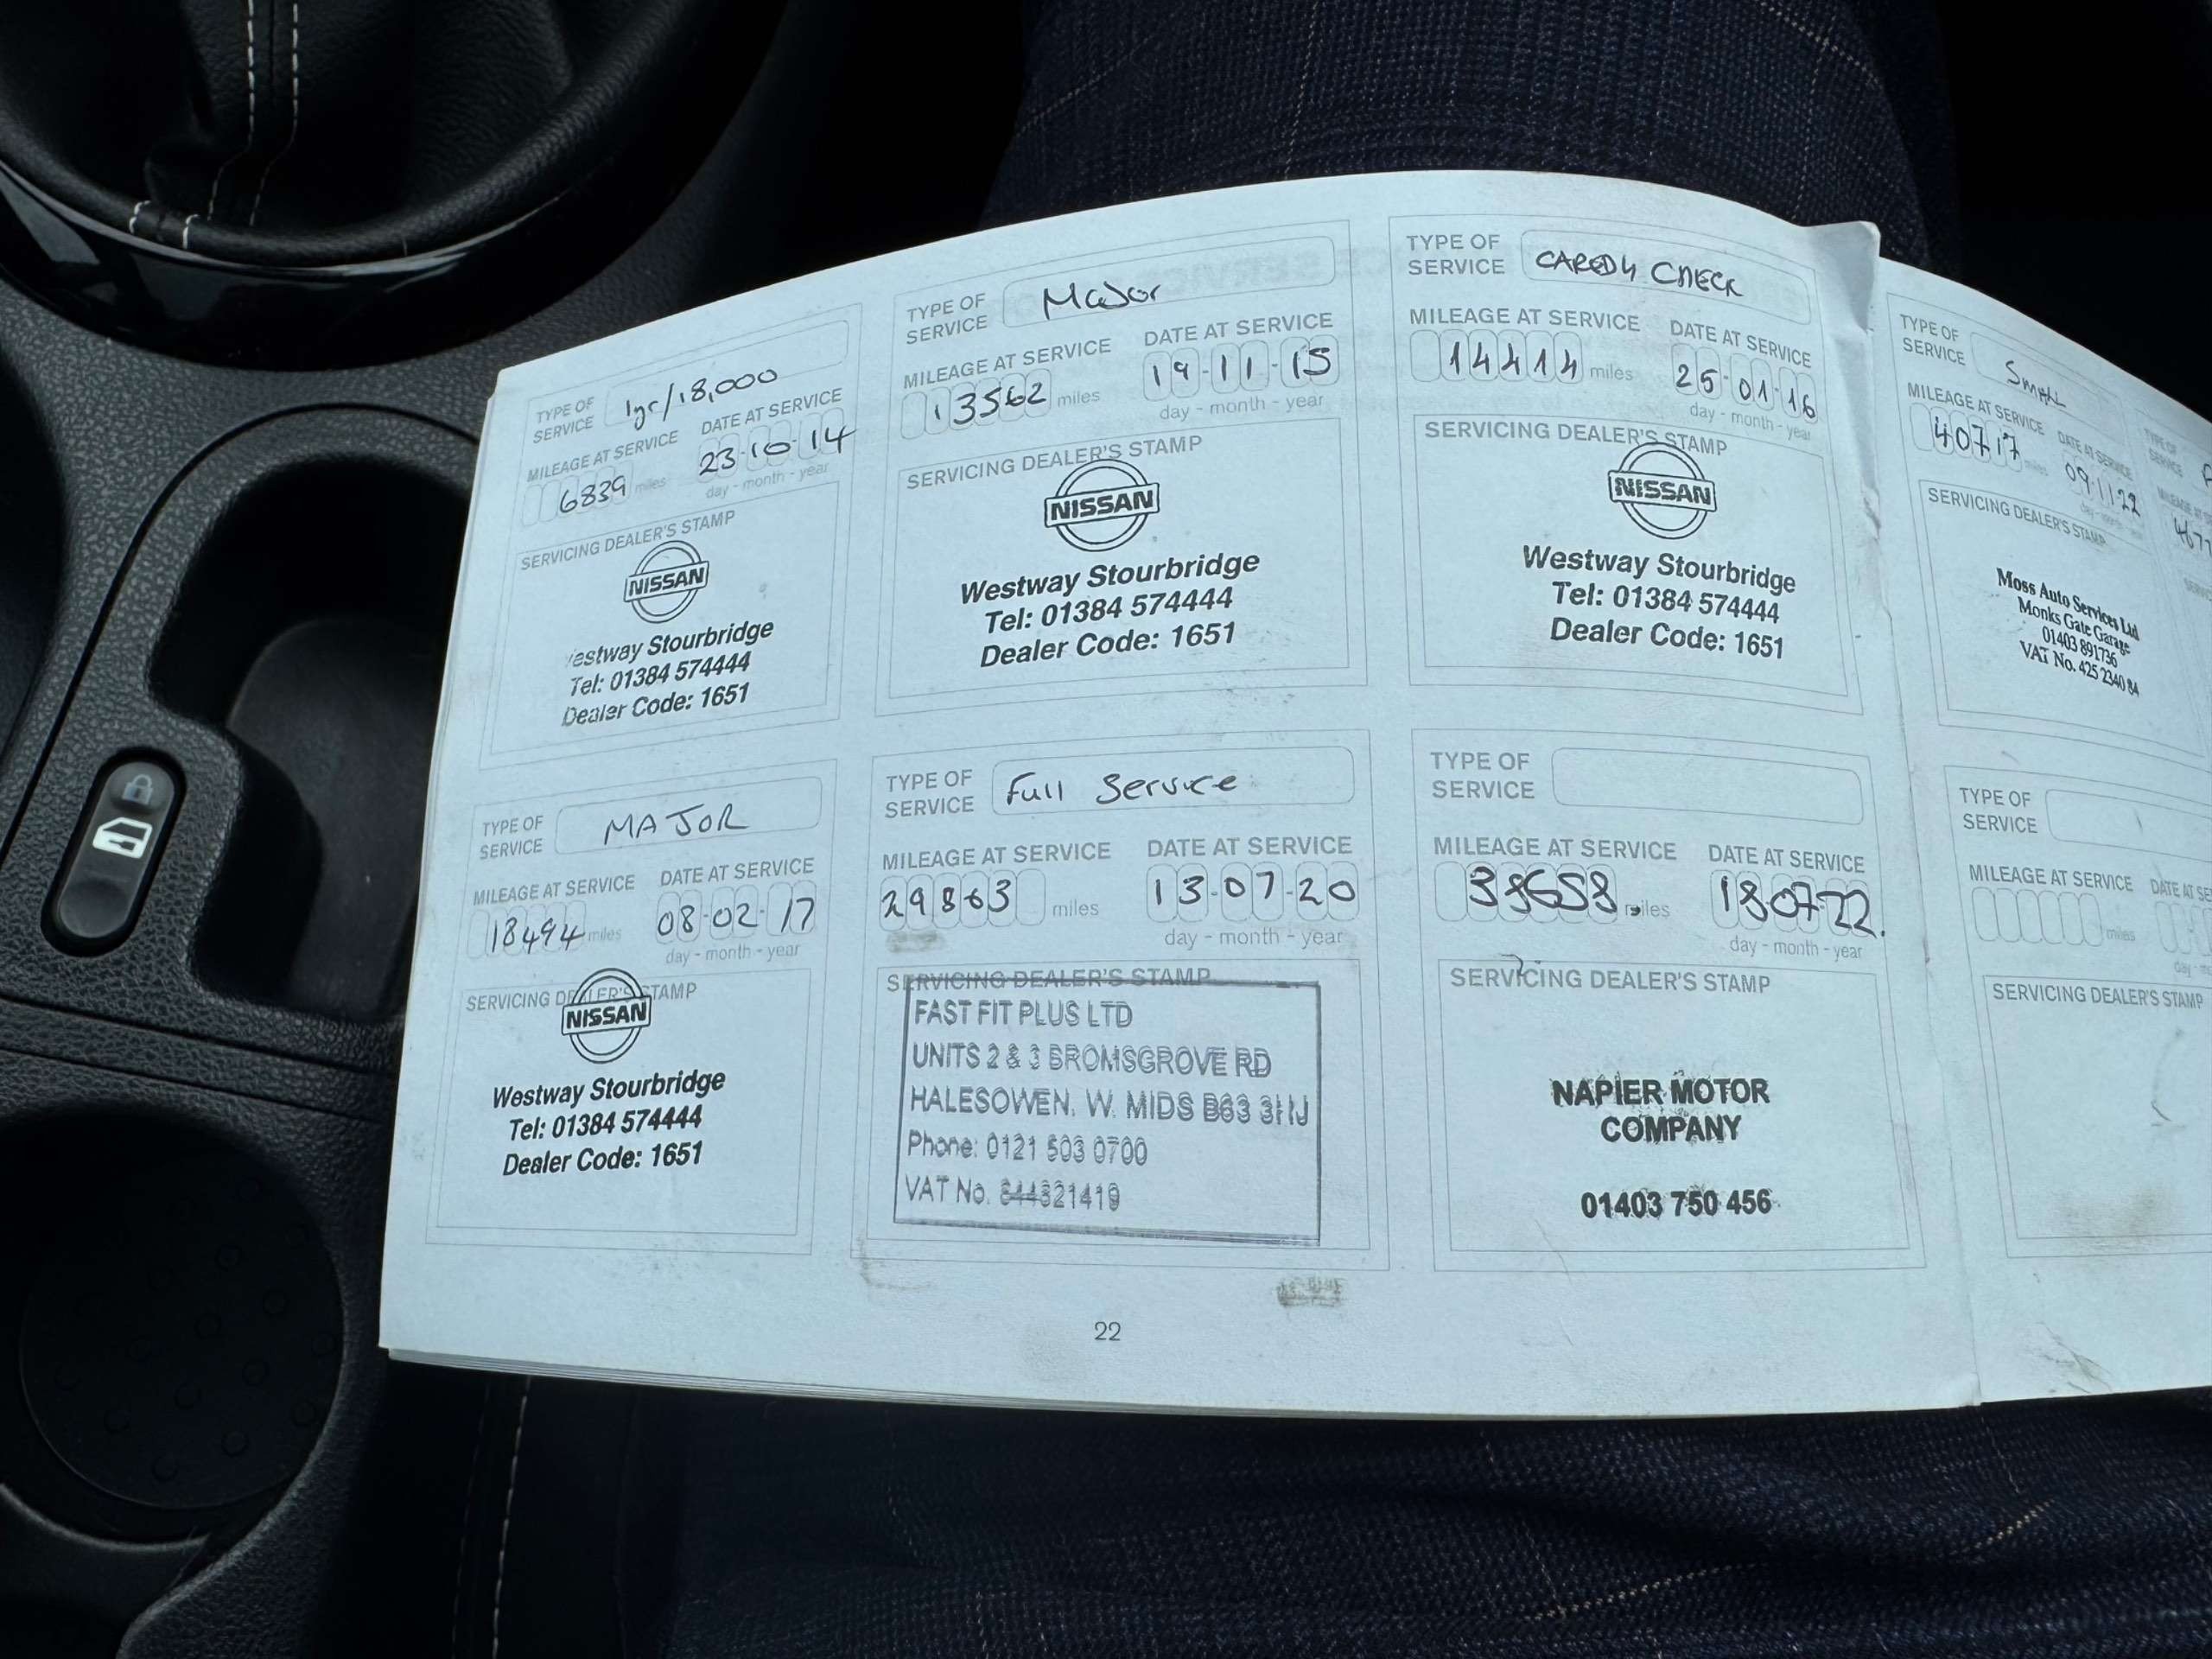 TYPE OF
SERVICE 1yr/18,000
MILEAGE AT SERVICE DATE AT SERVICE
6839 miles 23-10-14
day - month - year
SERVICING DEALER'S STAMP
NISSAN
estway Stourbridge
Tel: 01384 574444
Dealer Code: 1651
TYPE OF
SERVICE Major
MILEAGE AT SERVICE DATE AT SERVICE
13562 miles 19-11-15
day - month - year
SERVICING DEALER'S STAMP
NISSAN
Westway Stourbridge
Tel: 01384 574444
Dealer Code: 1651
TYPE OF
SERVICE CARED4 CHECK
MILEAGE AT SERVICE DATE AT SERVICE
14414 miles 25-01-16
day - month - year
SERVICING DEALER'S STAMP
NISSAN
Westway Stourbridge
Tel: 01384 574444
Dealer Code: 1651
TYPE OF
SERVICE SMALL
MILEAGE AT SERVICE DATE AT SERVICE
40717 miles 09-11-22
SERVICING DEALER'S STAMP
Moss Auto Services Ltd
Monks Gate Garage
01403 891736
VAT No. 425 2340 84
TYPE OF
SERVICE
TYPE OF
SERVICE MAJOR
MILEAGE AT SERVICE DATE AT SERVICE
18494 miles 08-02-17
day - month - year
SERVICING DEALER'S STAMP
NISSAN
Westway Stourbridge
Tel: 01384 574444
Dealer Code: 1651
TYPE OF
SERVICE Full Service
MILEAGE AT SERVICE DATE AT SERVICE
29863 miles 13-07-20
day - month - year
SERVICING DEALER'S STAMP
FAST FIT PLUS LTD
UNITS 2 & 3 BROMSGROVE RD
HALESOWEN. W. MIDS B63 3HJ
Phone: 0121 503 0700
VAT No. 844321419
TYPE OF
SERVICE
MILEAGE AT SERVICE DATE AT SERVICE
38658 miles 18-07-22.
day - month - year
SERVICING DEALER'S STAMP
NAPIER MOTOR
COMPANY
01403 750 456
TYPE OF
SERVICE
MILEAGE AT SERVICE DATE AT SE
miles
SERVICING DEALER'S STAMP
22